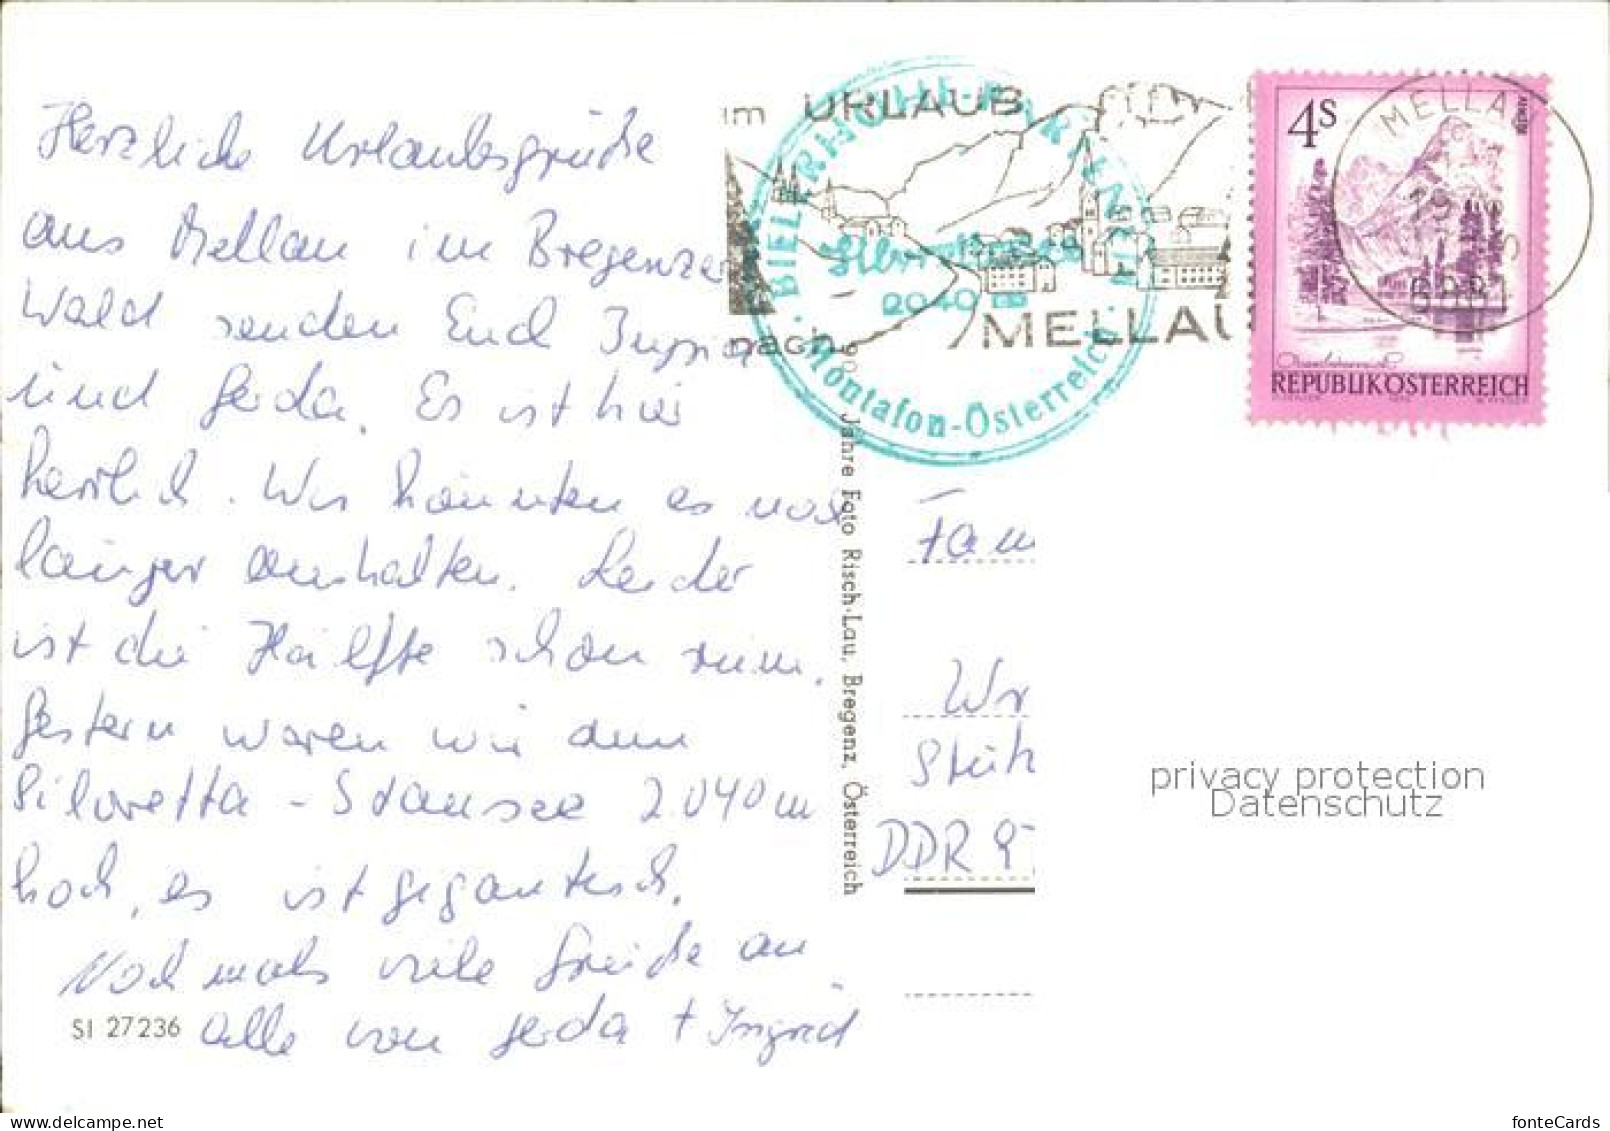 Herzliche Urlaubsgrüße
aus Mellau im Bregenzer
Wald senden Euch Ingrid
und Gerda. Es ist hier
herrlich. Wir könnten es noch
länger aushalten. Leider
ist die Hälfte schon rum.
Gestern waren wir am
Silvretta-Stausee 2.040m
hoch, es ist gigantisch.
Nochmals viele Grüße an
alle von Gerda + Ingrid
SI 27236
90 Jahre Foto Risch-Lau, Bregenz, Österreich
im URLAUB
nach MELLAU
BIELERHÖHE
2040 m
Montafon-Österreich
4S
REPUBLIK ÖSTERREICH
MELLAU
Fam
Wr
DDR 9
privacy protection
Datenschutz
fonteCards